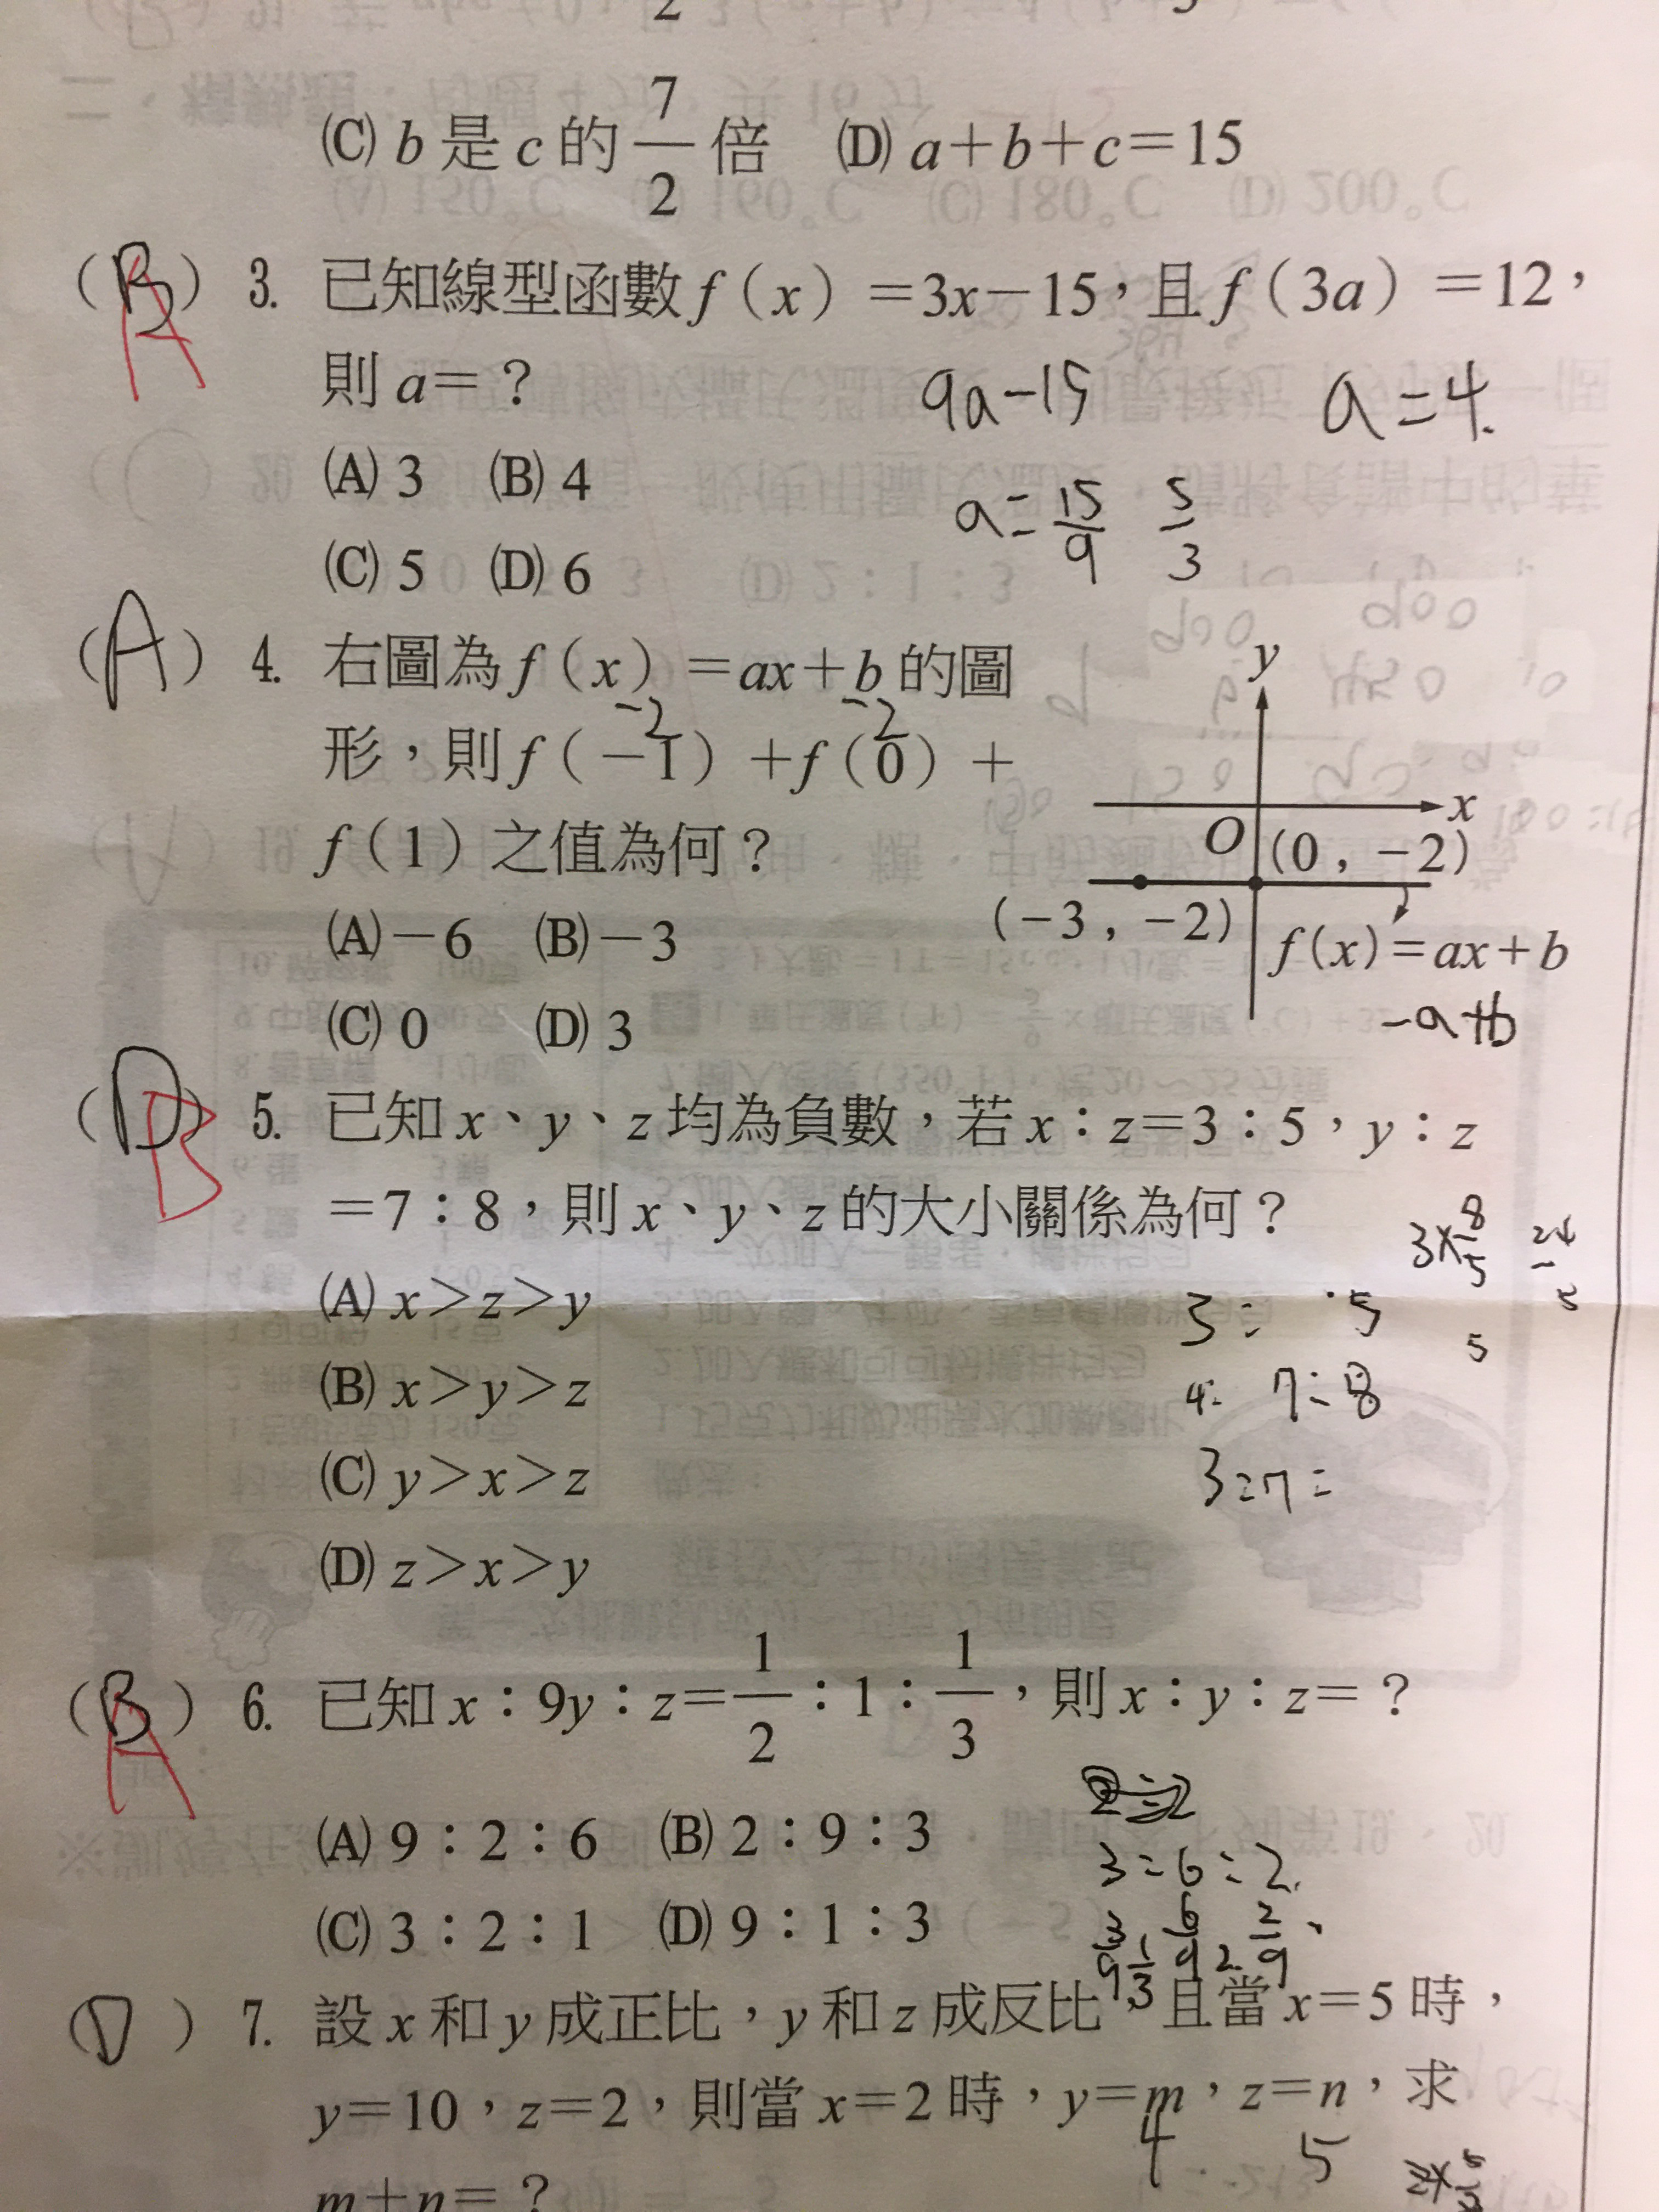 2
(C) b 是 c 的 7/2 倍 (D) a+b+c=15
(B) A 3. 已知線型函數 f(x)=3x-15，且 f(3a)=12，
則 a=？ 9a-15 a=4.
(A) 3 (B) 4
a=15/9 5/3
(C) 5 (D) 6
(A) 4. 右圖為 f(x)=ax+b 的圖
-2 -2
形，則 f(-1)+f(0)+
f(1) 之值為何？
y
x
O (0,-2)
(-3,-2)
f(x)=ax+b
-a+b
(A) -6 (B) -3
(C) 0 (D) 3
(D) B 5. 已知 x、y、z 均為負數，若 x：z=3：5，y：z
=7：8，則 x、y、z 的大小關係為何？
3×8/5 24/5
(A) x>z>y
3: :5
5
(B) x>y>z
7:8
(C) y>x>z
3:7:
(D) z>x>y
(B) A 6. 已知 x：9y：z=1/2：1：1/3，則 x：y：z=？
(A) 9：2：6 (B) 2：9：3
3:6:2
(C) 3：2：1 (D) 9：1：3
3/9 1/3 6/9 2 2/9
(D) 7. 設 x 和 y 成正比，y 和 z 成反比，且當 x=5 時，
y=10，z=2，則當 x=2 時，y=m，z=n，求
4 5
m+n=？